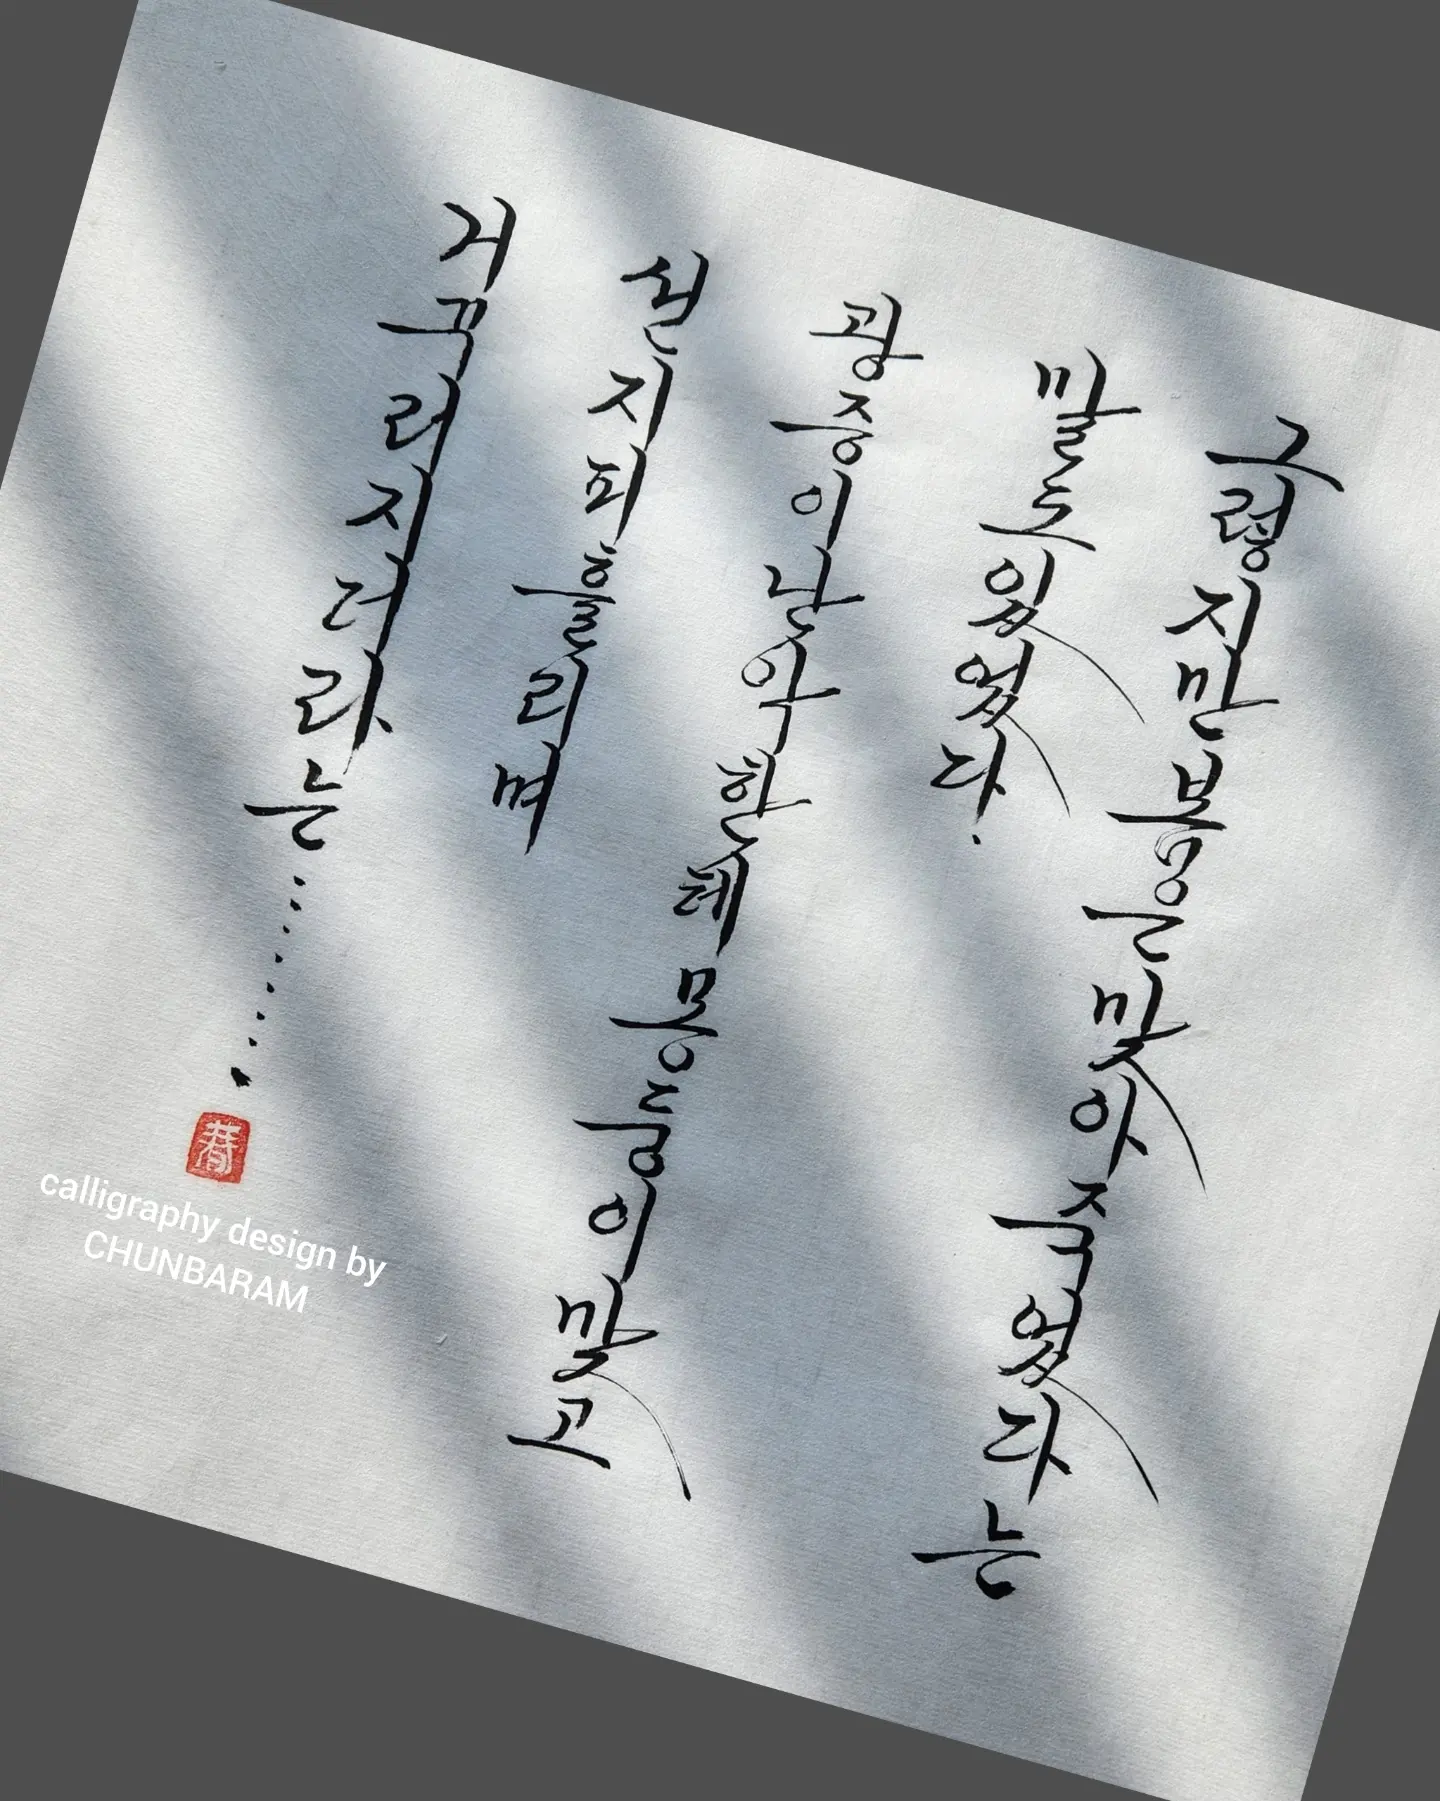 그렇지만 봉은 맞아 죽었다는
말도 있었다.
광중이 난악한테 몽둥이 맞고
선지피 흘리며
거꾸러지더라는........
春
calligraphy design by
CHUNBARAM